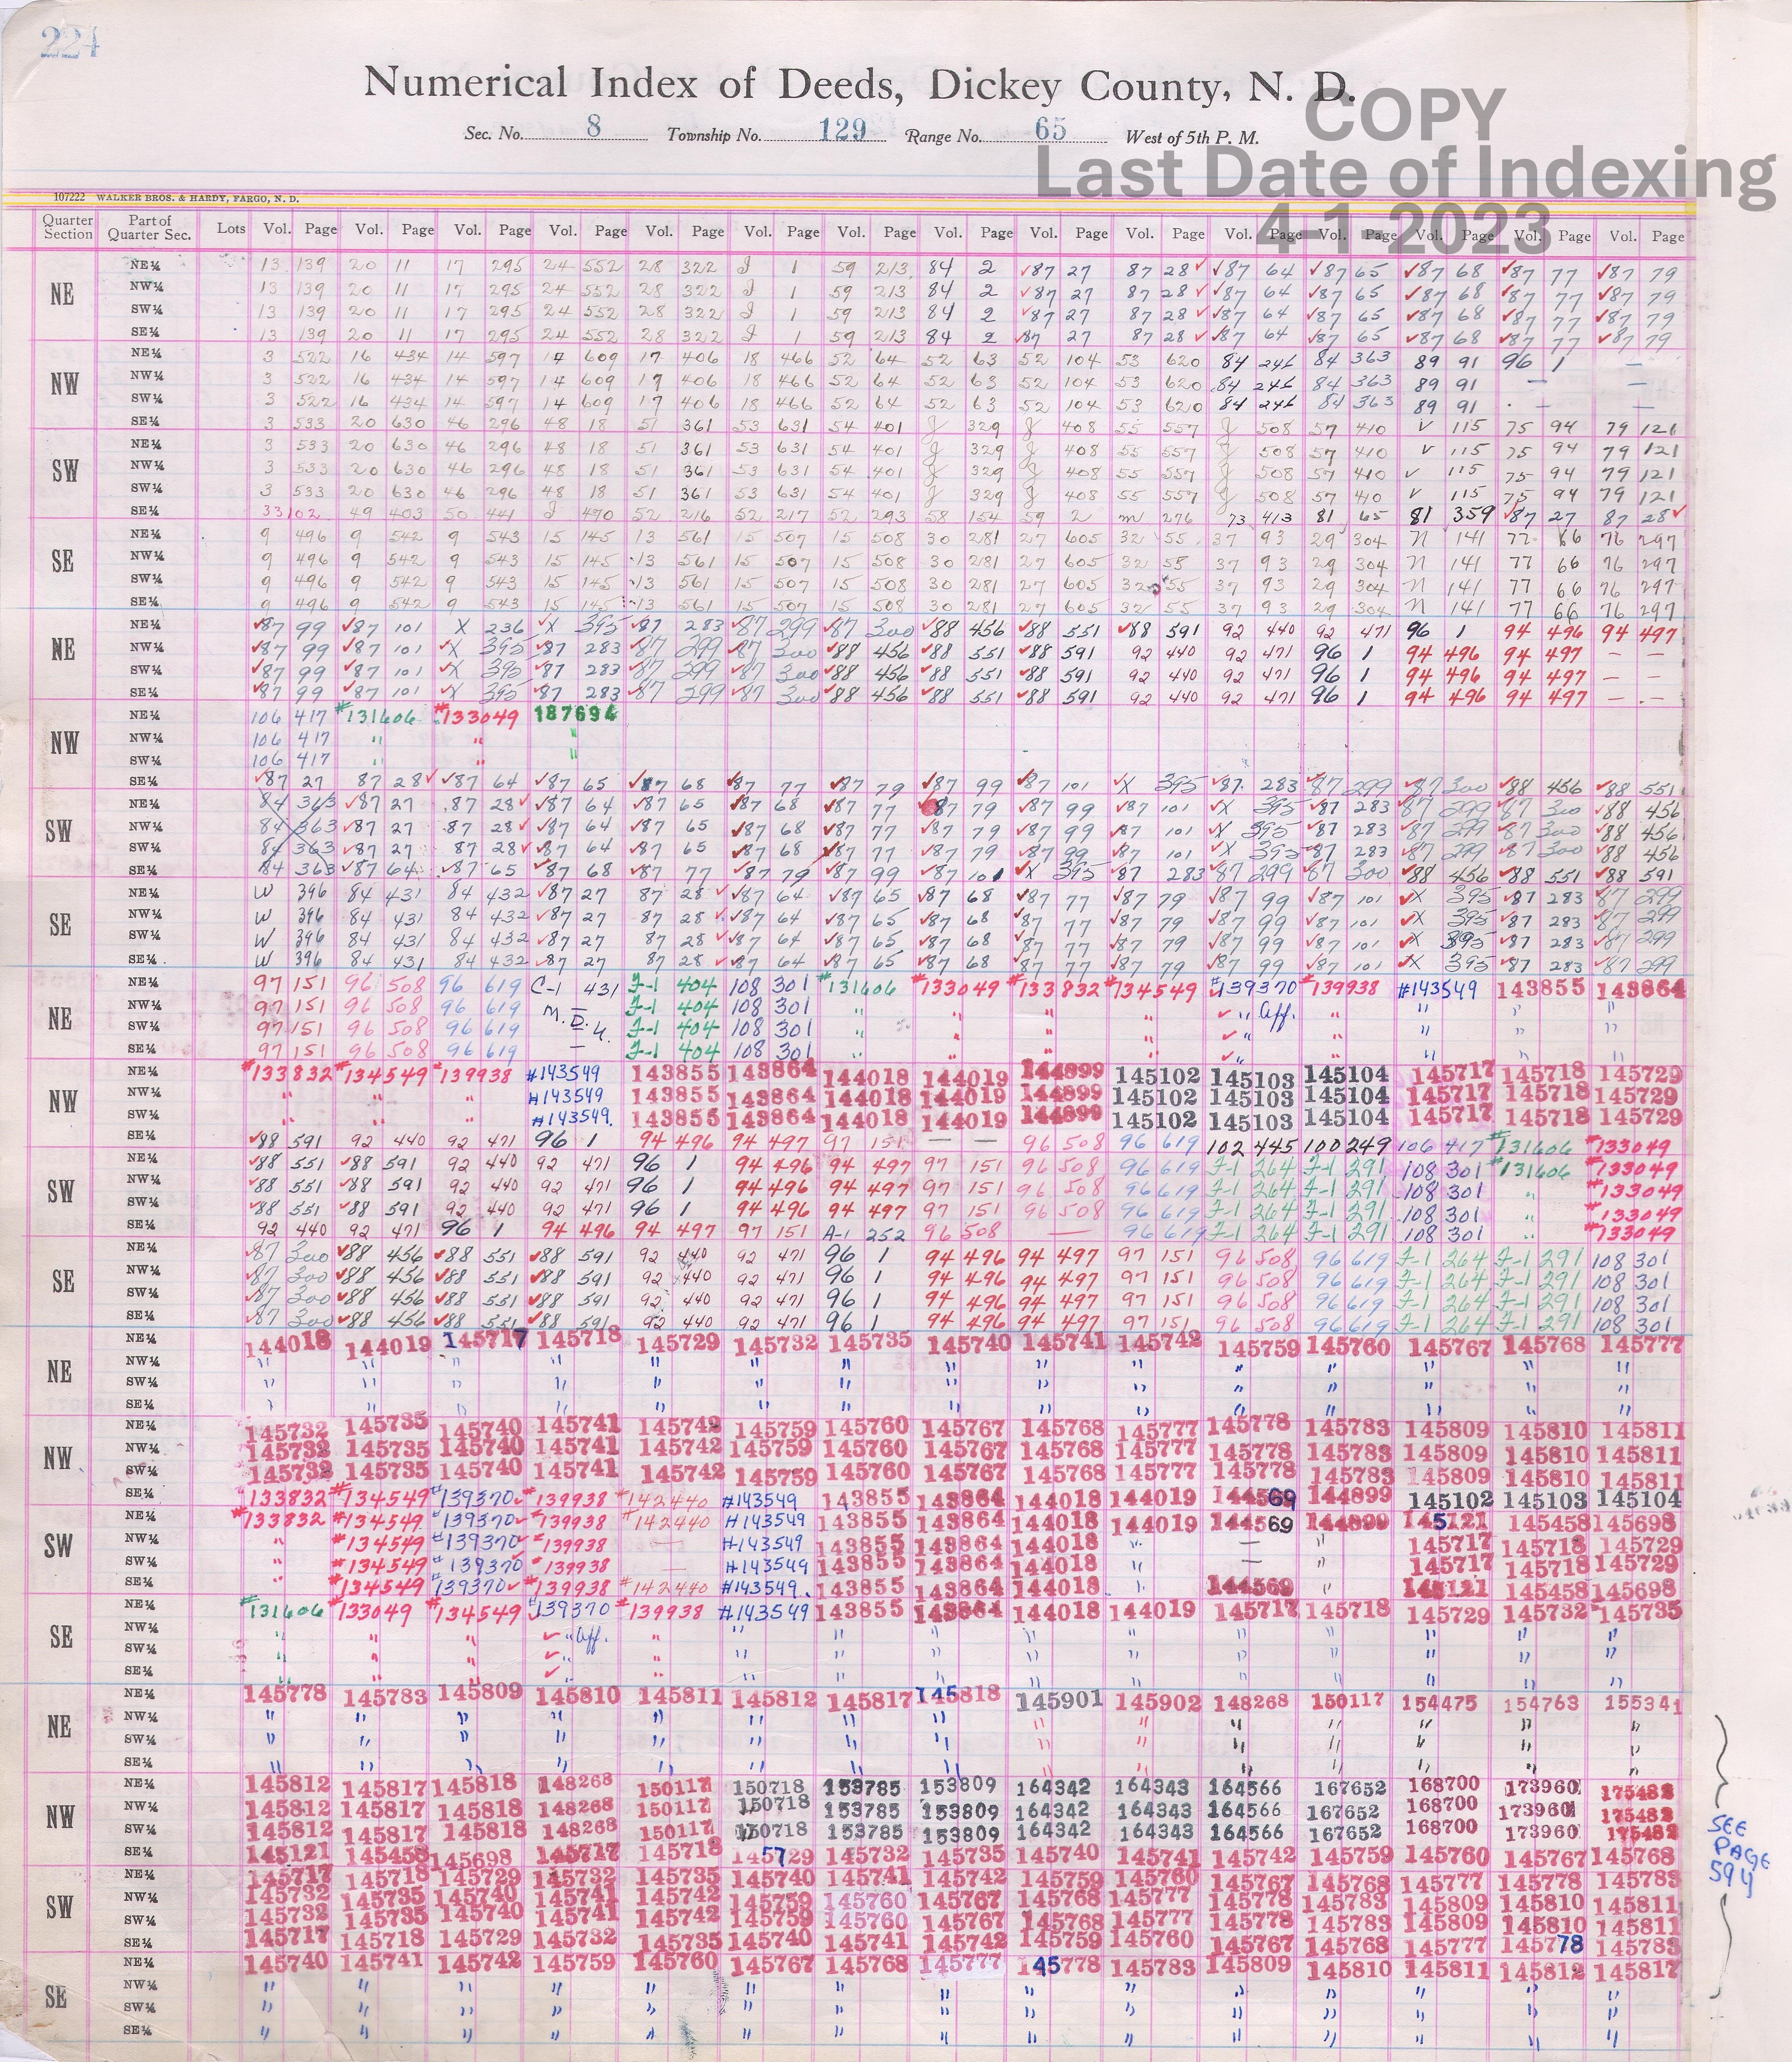 224
Numerical Index of Deeds, Dickey County, N. D.
COPY
Sec. No. 8 Township No. 129 Range No. 65 West of 5th P. M.
Last Date of Indexing
4-1-2023
107222 WALKER BROS. & HARDY, FARGO, N. D.
Quarter Section Part of Quarter Sec. Lots Vol. Page Vol. Page Vol. Page Vol. Page Vol. Page Vol. Page Vol. Page Vol. Page Vol. Page Vol. Page Vol. Page Vol. Page Vol. Page Vol. Page Vol. Page
NE
NE¼ 13 139 20 11 17 295 24 552 28 322 J 1 59 213 84 2 87 27 87 28 87 64 87 65 87 68 87 77 87 79
NW¼ 13 139 20 11 17 295 24 552 28 322 J 1 59 213 84 2 87 27 87 28 87 64 87 65 87 68 87 77 87 79
SW¼ 13 139 20 11 17 295 24 552 28 322 J 1 59 213 84 2 87 27 87 28 87 64 87 65 87 68 87 77 87 79
SE¼ 13 139 20 11 17 295 24 552 28 322 J 1 59 213 84 2 87 27 87 28 87 64 87 65 87 68 87 77 87 79
NW
NE¼ 3 522 16 434 14 597 14 609 17 406 18 466 52 64 52 63 52 104 53 620 84 246 84 363 89 91 96 1 —
NW¼ 3 522 16 434 14 597 14 609 17 406 18 466 52 64 52 63 52 104 53 620 84 246 84 363 89 91 — —
SW¼ 3 522 16 434 14 597 14 609 17 406 18 466 52 64 52 63 52 104 53 620 84 246 84 363 89 91 — —
SE¼ 3 533 20 630 46 296 48 18 51 361 53 631 54 401 J 329 J 408 55 557 J 508 57 410 V 115 75 94 79 121
SW
NE¼ 3 533 20 630 46 296 48 18 51 361 53 631 54 401 J 329 J 408 55 557 J 508 57 410 V 115 75 94 79 121
NW¼ 3 533 20 630 46 296 48 18 51 361 53 631 54 401 J 329 J 408 55 557 J 508 57 410 V 115 75 94 79 121
SW¼ 3 533 20 630 46 296 48 18 51 361 53 631 54 401 J 329 J 408 55 557 J 508 57 410 V 115 75 94 79 121
SE¼ 33 102 49 403 50 441 J 470 52 216 52 217 52 293 58 154 59 2 M 276 73 413 81 65 81 359 87 27 87 28
SE
NE¼ 9 496 9 542 9 543 15 145 13 561 15 507 15 508 30 281 27 605 32 55 37 93 29 304 N 141 77 66 76 297
NW¼ 9 496 9 542 9 543 15 145 13 561 15 507 15 508 30 281 27 605 32 55 37 93 29 304 N 141 77 66 76 297
SW¼ 9 496 9 542 9 543 15 145 13 561 15 507 15 508 30 281 27 605 32 55 37 93 29 304 N 141 77 66 76 297
SE¼ 9 496 9 542 9 543 15 145 13 561 15 507 15 508 30 281 27 605 32 55 37 93 29 304 N 141 77 66 76 297
NE
NE¼ 87 99 87 101 X 236 X 395 87 283 87 299 87 300 88 456 88 551 88 591 92 440 92 471 96 1 94 496 94 497
NW¼ 87 99 87 101 X 395 87 283 87 299 87 300 88 456 88 551 88 591 92 440 92 471 96 1 94 496 94 497 — —
SW¼ 87 99 87 101 X 395 87 283 87 299 87 300 88 456 88 551 88 591 92 440 92 471 96 1 94 496 94 497 — —
SE¼ 87 99 87 101 X 395 87 283 87 299 87 300 88 456 88 551 88 591 92 440 92 471 96 1 94 496 94 497 — —
NW
NE¼ 106 417 #131606 #133049 187694
NW¼ 106 417 " " "
SW¼ 106 417 " " "
SE¼ 87 27 87 28 87 64 87 65 87 68 87 77 87 79 87 99 87 101 X 395 87 283 87 299 87 300 88 456 88 551
SW
NE¼ 84 363 87 27 87 28 87 64 87 65 87 68 87 77 87 79 87 99 87 101 X 395 87 283 87 299 87 300 88 456
NW¼ 84 363 87 27 87 28 87 64 87 65 87 68 87 77 87 79 87 99 87 101 X 395 87 283 87 299 87 300 88 456
SW¼ 84 363 87 27 87 28 87 64 87 65 87 68 87 77 87 79 87 99 87 101 X 395 87 283 87 299 87 300 88 456
SE¼ 84 363 87 64 87 65 87 68 87 77 87 79 87 99 87 101 X 395 87 283 87 299 87 300 88 456 88 551 88 591
SE
NE¼ W 396 84 431 84 432 87 27 87 28 87 64 87 65 87 68 87 77 87 79 87 99 87 101 X 395 87 283 87 299
NW¼ W 396 84 431 84 432 87 27 87 28 87 64 87 65 87 68 87 77 87 79 87 99 87 101 X 395 87 283 87 299
SW¼ W 396 84 431 84 432 87 27 87 28 87 64 87 65 87 68 87 77 87 79 87 99 87 101 X 395 87 283 87 299
SE¼ W 396 84 431 84 432 87 27 87 28 87 64 87 65 87 68 87 77 87 79 87 99 87 101 X 395 87 283 87 299
NE
NE¼ 97 151 96 508 96 619 C-1 431 F-1 404 108 301 #131606 #133049 #133832 #134549 #139370 #139938 #143549 143855 143864
NW¼ 97 151 96 508 96 619 M.D. F-1 404 108 301 " " " " " Aff. " " " "
SW¼ 97 151 96 508 96 619 4. F-1 404 108 301 " " " " " " " " "
SE¼ 97 151 96 508 96 619 — F-1 404 108 301 " " " " " " " " "
NW
NE¼ #133832 #134549 #139938 #143549 143855 143864 144018 144019 144899 145102 145103 145104 145717 145718 145729
NW¼ " " " #143549 143855 143864 144018 144019 144899 145102 145103 145104 145717 145718 145729
SW¼ " " " #143549. 143855 143864 144018 144019 144899 145102 145103 145104 145717 145718 145729
SE¼ 88 591 92 440 92 471 96 1 94 496 94 497 97 151 — — 96 508 96 619 102 445 100 249 106 417 #131606 #133049
SW
NE¼ 88 551 88 591 92 440 92 471 96 1 94 496 94 497 97 151 96 508 96 619 F-1 264 F-1 291 108 301 #131606 #133049
NW¼ 88 551 88 591 92 440 92 471 96 1 94 496 94 497 97 151 96 508 96 619 F-1 264 F-1 291 108 301 " #133049
SW¼ 88 551 88 591 92 440 92 471 96 1 94 496 94 497 97 151 96 508 96 619 F-1 264 F-1 291 108 301 " #133049
SE¼ 92 440 92 471 96 1 94 496 94 497 97 151 A-1 252 96 508 — 96 619 F-1 264 F-1 291 108 301 " #133049
SE
NE¼ 87 300 88 456 88 551 88 591 92 440 92 471 96 1 94 496 94 497 97 151 96 508 96 619 F-1 264 F-1 291 108 301
NW¼ 87 300 88 456 88 551 88 591 92 440 92 471 96 1 94 496 94 497 97 151 96 508 96 619 F-1 264 F-1 291 108 301
SW¼ 87 300 88 456 88 551 88 591 92 440 92 471 96 1 94 496 94 497 97 151 96 508 96 619 F-1 264 F-1 291 108 301
SE¼ 87 300 88 456 88 551 88 591 92 440 92 471 96 1 94 496 94 497 97 151 96 508 96 619 F-1 264 F-1 291 108 301
NE
NE¼ 144018 144019 145717 145718 145729 145732 145735 145740 145741 145742 145759 145760 145767 145768 145777
NW¼ " " " " " " " " " " " " " " "
SW¼ " " " " " " " " " " " " " " "
SE¼ " " " " " " " " " " " " " " "
NW
NE¼ 145732 145735 145740 145741 145742 145759 145760 145767 145768 145777 145778 145783 145809 145810 145811
NW¼ 145732 145735 145740 145741 145742 145759 145760 145767 145768 145777 145778 145783 145809 145810 145811
SW¼ 145732 145735 145740 145741 145742 145759 145760 145767 145768 145777 145778 145783 145809 145810 145811
SE¼ #133832 #134549 #139370 #139938 #142440 #143549 143855 143864 144018 144019 144569 144899 145102 145103 145104
SW
NE¼ #133832 #134549 #139370 #139938 #142440 #143549 143855 143864 144018 144019 144569 144899 145121 145458 145698
NW¼ " #134549 #139370 #139938 — #143549 143855 143864 144018 " — " 145717 145718 145729
SW¼ " #134549 #139370 #139938 — #143549 143855 143864 144018 " — " 145717 145718 145729
SE¼ " #134549 #139370 #139938 #142440 #143549. 143855 143864 144018 " 144569 " 145121 145458 145698
SE
NE¼ #131606 #133049 #134549 #139370 #139938 #143549 143855 143864 144018 144019 145717 145718 145729 145732 145735
NW¼ " " " " Aff. " " " " " " " " " " "
SW¼ " " " " " " " " " " " " " " "
SE¼ " " " " " " " " " " " " " " "
NE
NE¼ 145778 145783 145809 145810 145811 145812 145817 145818 145901 145902 148268 150117 154475 154763 155341
NW¼ " " " " " " " " " " " " " " "
SW¼ " " " " " " " " " " " " " " "
SE¼ " " " " " " " " " " " " " " "
NW
NE¼ 145812 145817 145818 148268 150117 150718 153785 153809 164342 164343 164566 167652 168700 173960 175482
NW¼ 145812 145817 145818 148268 150117 150718 153785 153809 164342 164343 164566 167652 168700 173960 175482
SW¼ 145812 145817 145818 148268 150117 150718 153785 153809 164342 164343 164566 167652 168700 173960 175482
SE¼ 145121 145458 145698 145717 145718 145729 145732 145735 145740 145741 145742 145759 145760 145767 145768
SEE
PAGE
594
SW
NE¼ 145717 145718 145729 145732 145735 145740 145741 145742 145759 145760 145767 145768 145777 145778 145783
NW¼ 145732 145735 145740 145741 145742 145759 145760 145767 145768 145777 145778 145783 145809 145810 145811
SW¼ 145732 145735 145740 145741 145742 145759 145760 145767 145768 145777 145778 145783 145809 145810 145811
SE¼ 145717 145718 145729 145732 145735 145740 145741 145742 145759 145760 145767 145768 145777 145778 145783
SE
NE¼ 145740 145741 145742 145759 145760 145767 145768 145777 145778 145783 145809 145810 145811 145812 145817
NW¼ " " " " " " " " " " " " " " "
SW¼ " " " " " " " " " " " " " " "
SE¼ " " " " " " " " " " " " " " "